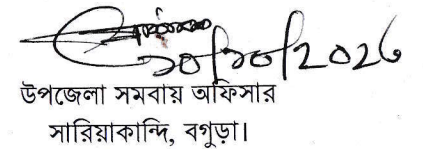 ১০/১০/2026
উপজেলা সমবায় অফিসার
সারিয়াকান্দি, বগুড়া।